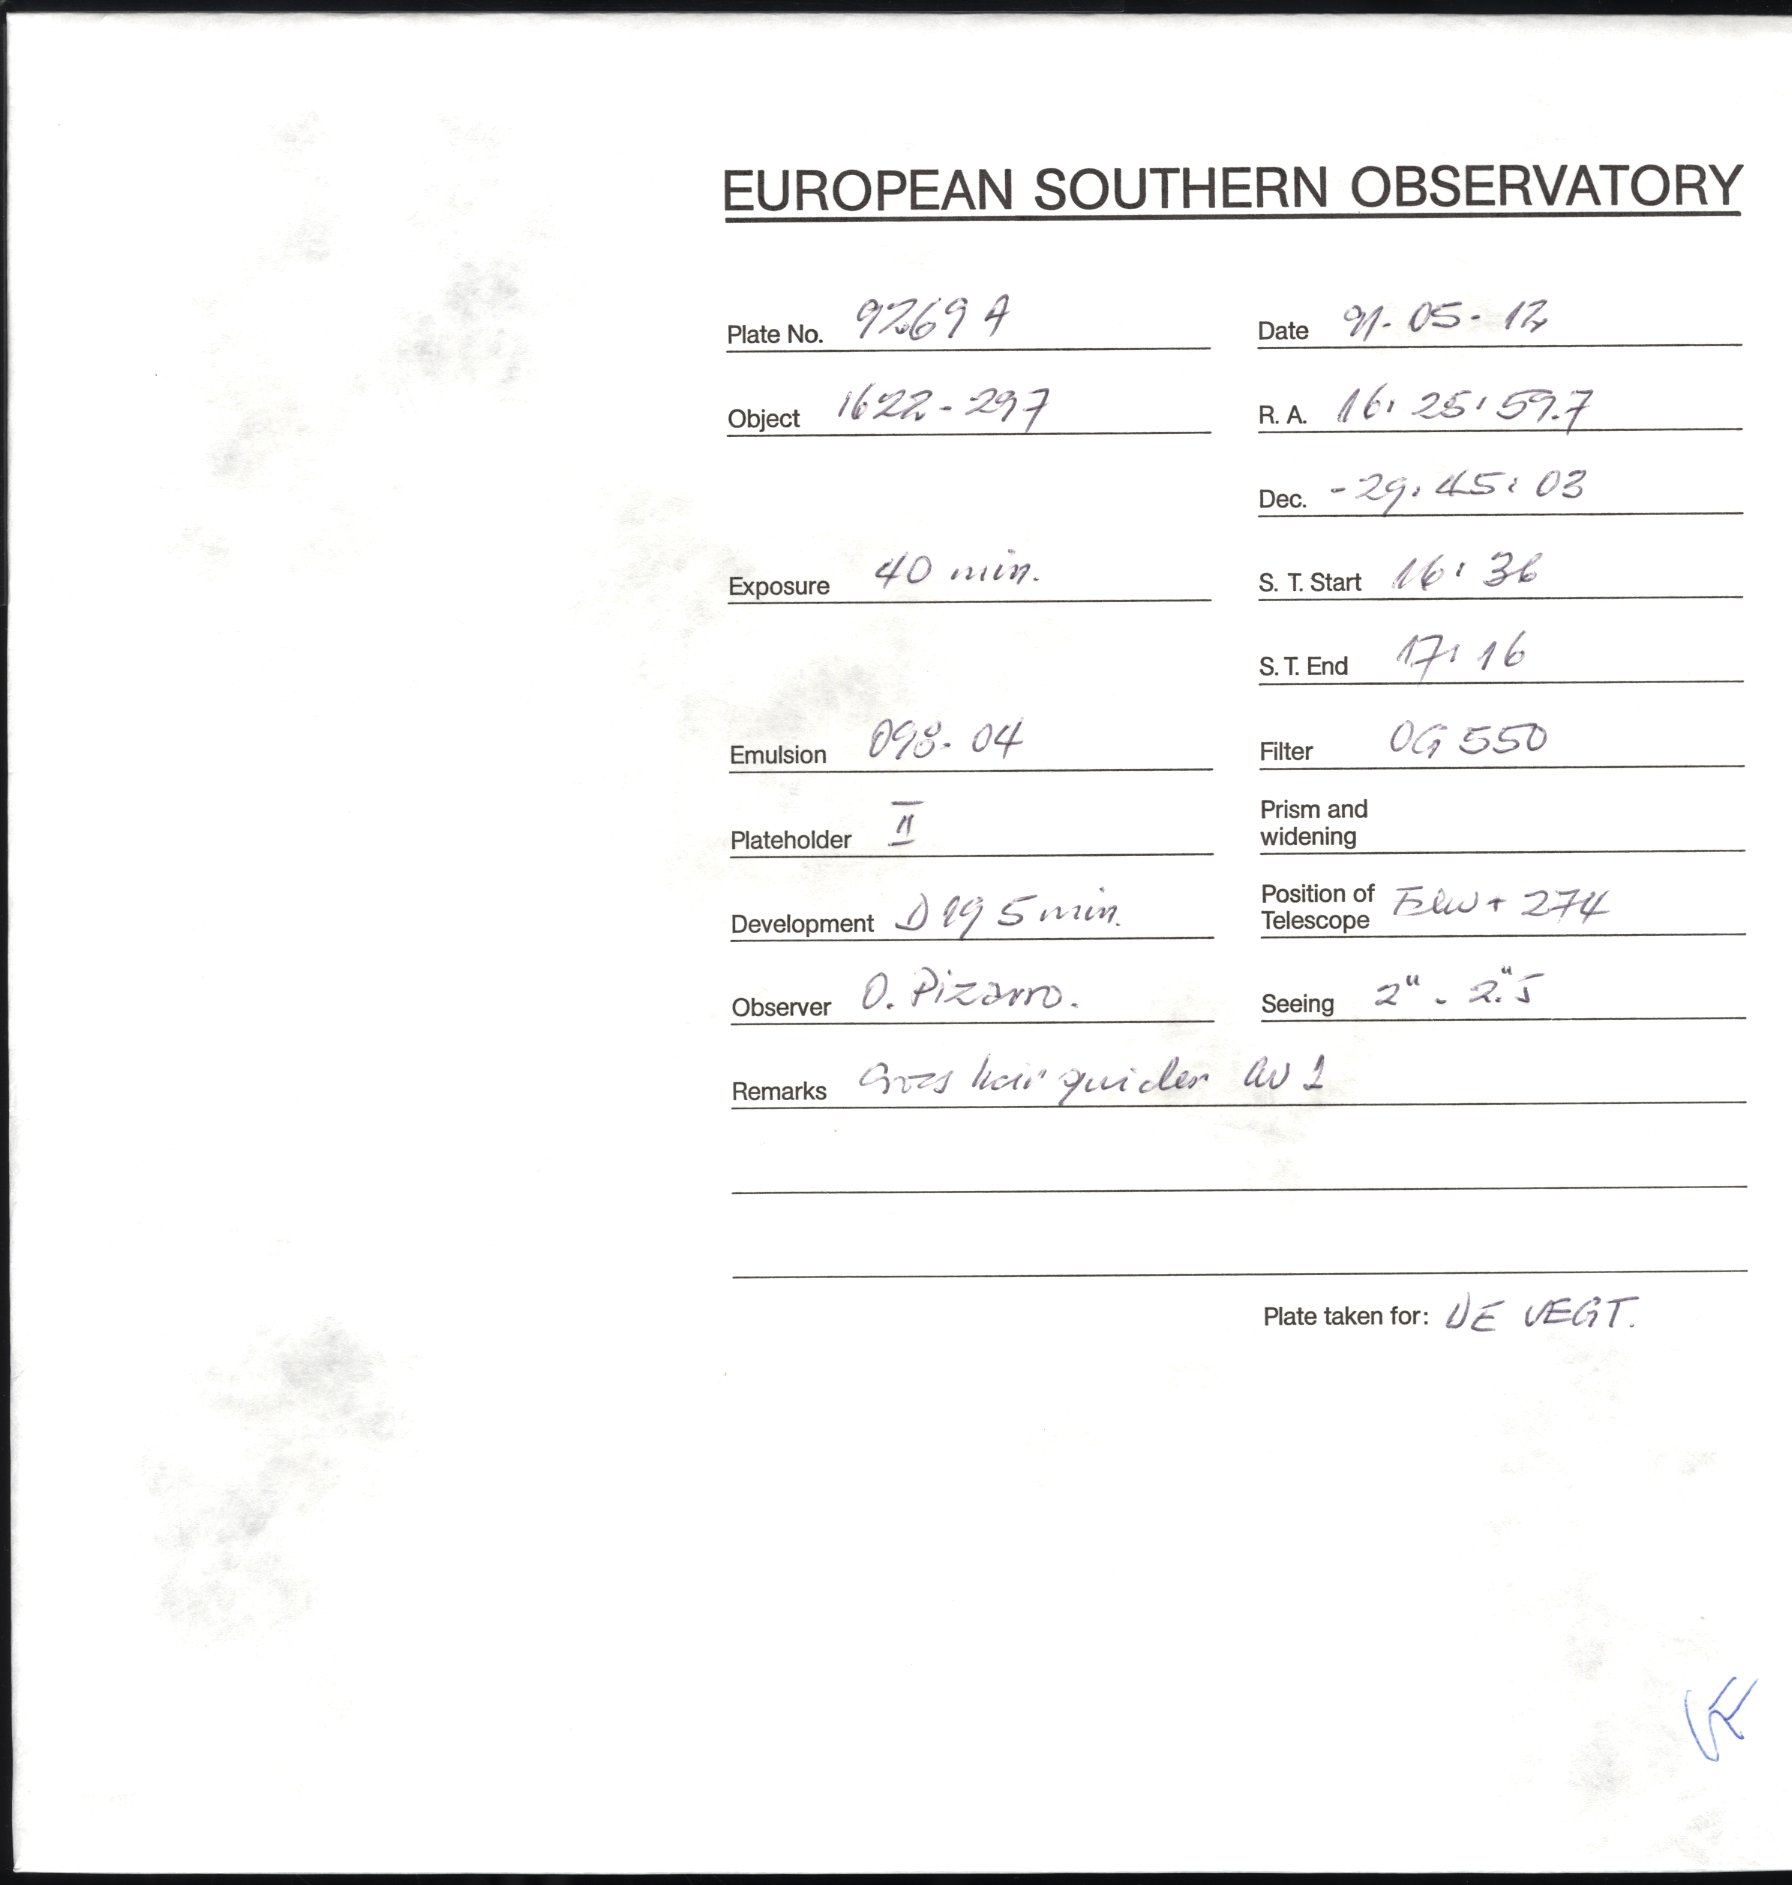 EUROPEAN SOUTHERN OBSERVATORY
Plate No. 9269 A Date 91-05-12
Object 1622-297 R. A. 16: 25: 59.7
Dec. -29: 45: 03
Exposure 40 min. S. T. Start 16: 36
S. T. End 17: 16
Emulsion 098-04 Filter OG 550
Plateholder II Prism and
widening
Development D19 5 min. Position of
Telescope + 274
Observer O. Pizarro. Seeing 2" - 2."5
Remarks Cross hair guider
Plate taken for: DE VEGT.